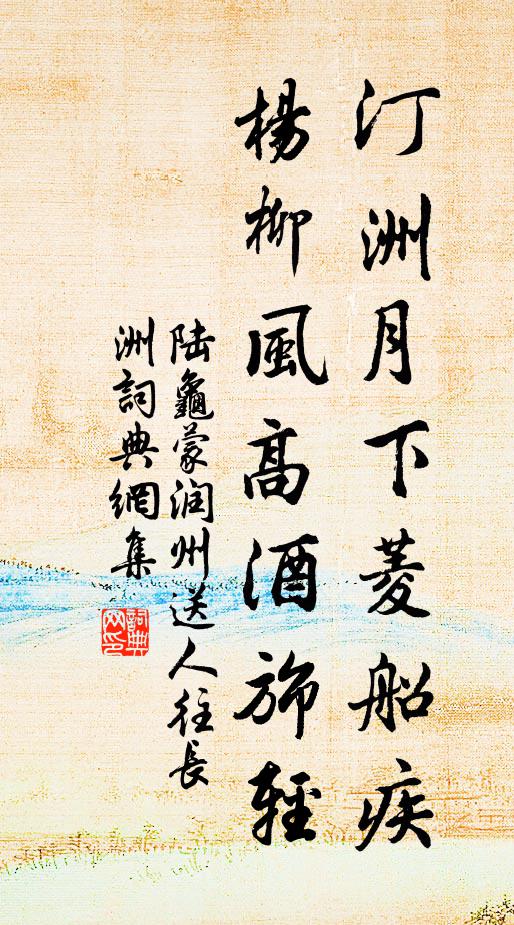 汀洲月下菱船疾
楊柳風高酒旆輕
陆龜蒙润州送人往長
洲詞典網集
詞典
网印